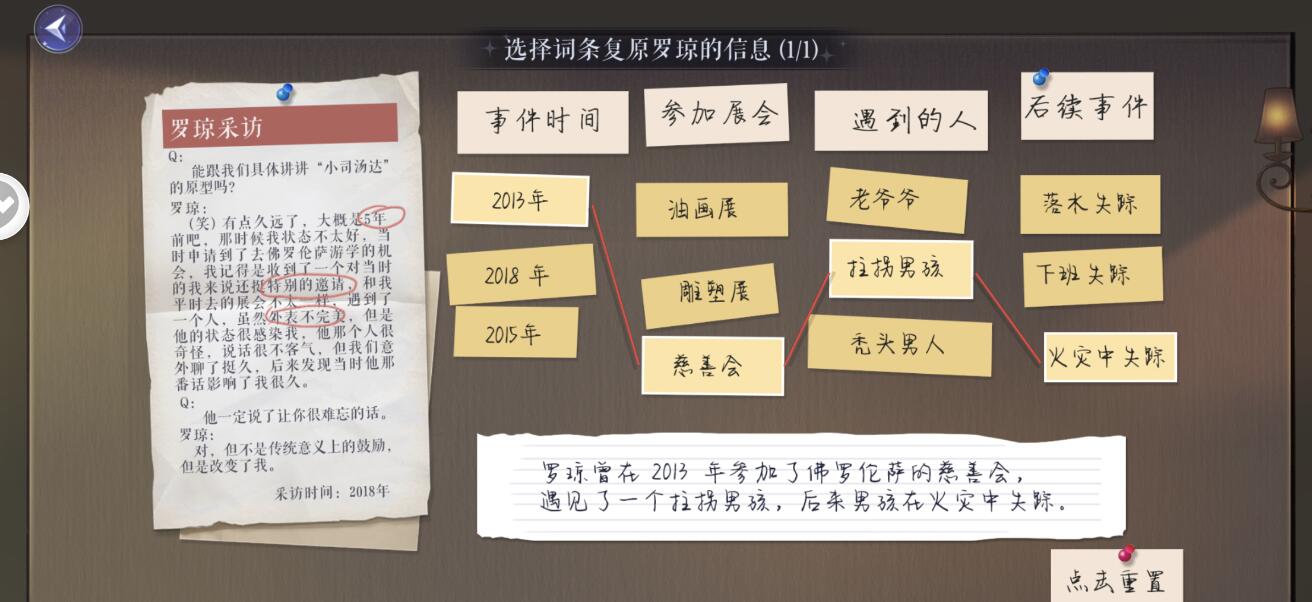 选择词条复原罗琼的信息 (1/1)
罗琼采访
Q:
能跟我们具体讲讲“小司汤达”
的原型吗?
罗琼:
(笑)有点久远了,大概是5年
前吧,那时候我状态不太好,当
时申请到了去佛罗伦萨游学的机
会,我记得是收到了一个对当时
的我来说还挺特别的邀请,和我
平时去的展会不太一样,遇到了
一个人,虽然外表不完美,但是
他的状态很感染我,他那个人很
奇怪,说话很不客气,但我们意
外聊了挺久,后来发现当时他那
番话影响了我很久。
Q:
他一定说了让你很难忘的话。
罗琼:
对,但不是传统意义上的鼓励,
但是改变了我。
采访时间:2018年
事件时间
参加展会
遇到的人
后续事件
2013年
油画展
老爷爷
落水失踪
2018 年
雕塑展
拄拐男孩
下班失踪
2015年
慈善会
秃头男人
火灾中失踪
罗琼曾在 2013 年参加了佛罗伦萨的慈善会,
遇见了一个拄拐男孩,后来男孩在火灾中失踪。
点击重置